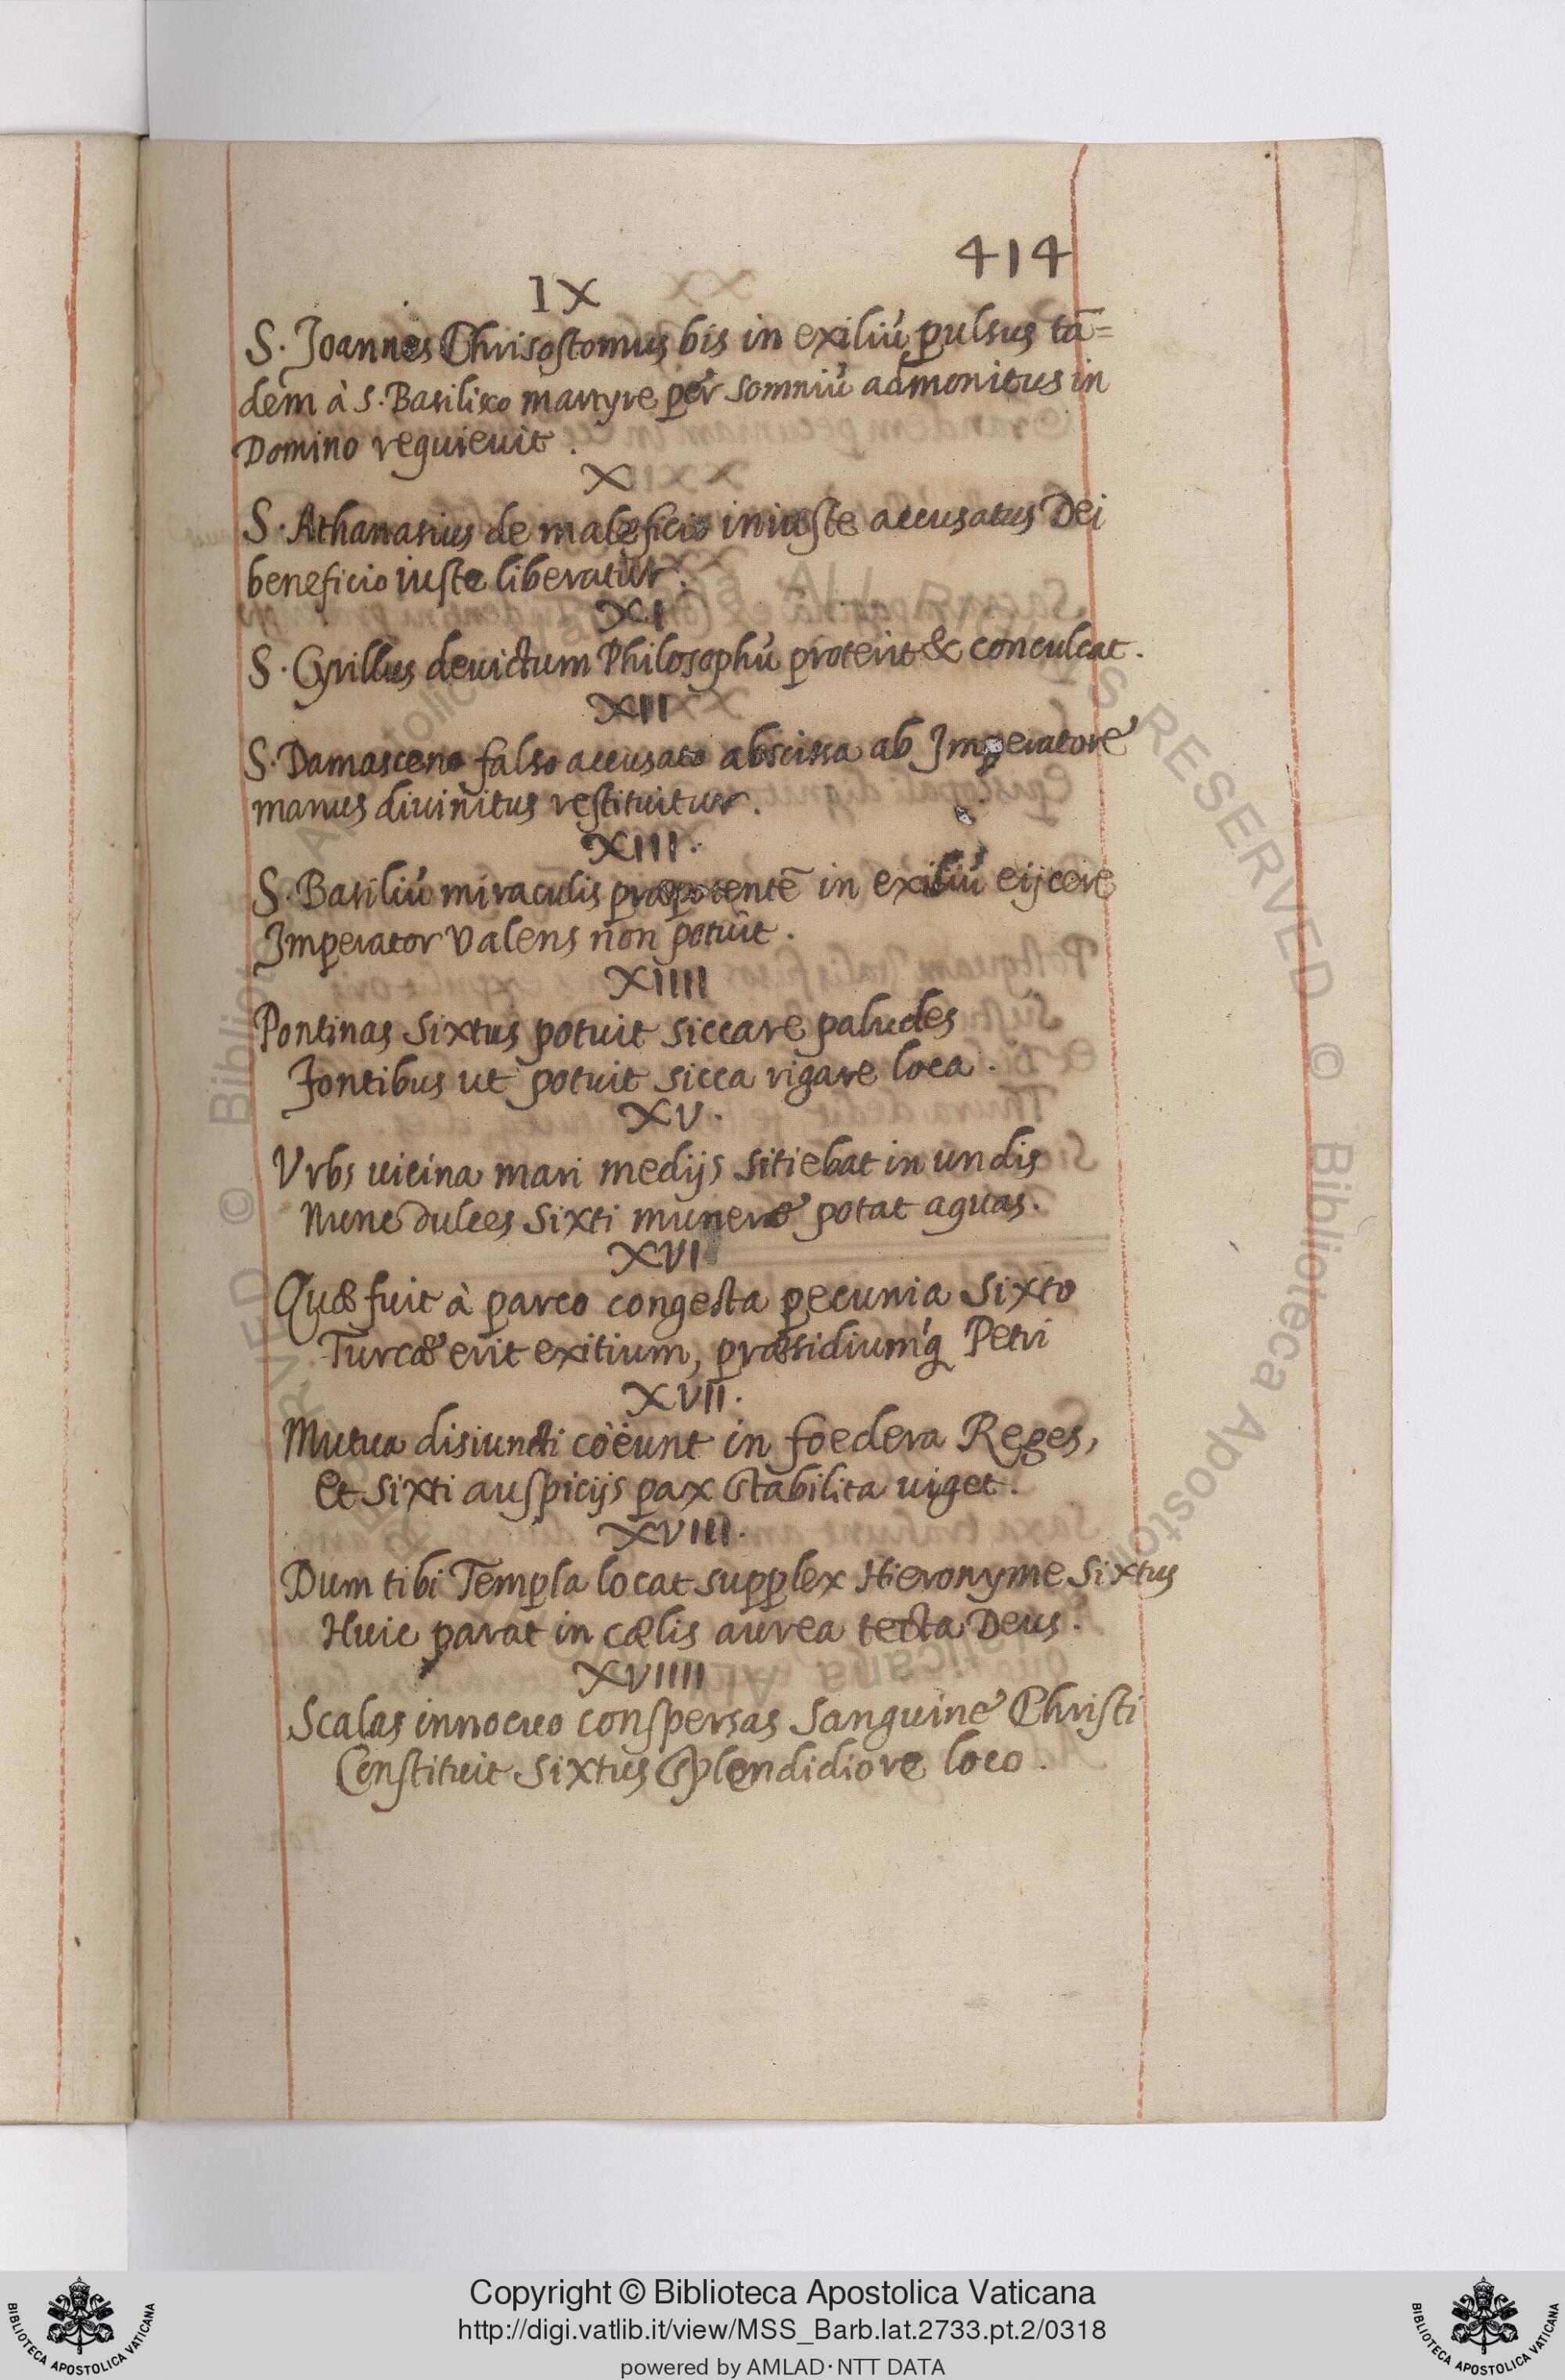 414
IX
S. Joannes Chrisostomus bis in exiliũ pulsus tã=
dem à S. Basilisco martyre per somniũ admonitus in
Domino requieuit.
X
S. Athanasius de maleficio iniuste accusatus Dei
beneficio iuste liberatur.
XI
S. Cyrillus deuictum Philosophũ proterit & conculcat.
XII
S. Damasceno falso accusato abscissa ab Imperatore
manus diuinitus restituitur.
XIII.
S. Basiliũ miraculis præpotentẽ in exiliũ eijcere
Imperator Valens non potuit.
XIIII
Pontinas Sixtus potuit siccare paludes
Fontibus ut potuit sicca rigare loca.
XV.
Vrbs uicina mari medijs sitiebat in undis
Nunc dulces Sixti munere potat aquas.
XVI
Quæ fuit à parco congesta pecunia Sixto
Turcæ erit exitium, præsidiumq́ Petri
XVII.
Mutua disiuncti coëunt in foedera Reges,
Et Sixti auspicijs pax stabilita uiget.
XVIII.
Dum tibi Templa locat supplex Hieronyme Sixtus
Huic parat in cælis aurea tecta Deus.
XVIIII
Scalas innocuo conspersas Sanguine Christi
Constituit Sixtus splendidiore loco.
Copyright © Biblioteca Apostolica Vaticana
http://digi.vatlib.it/view/MSS_Barb.lat.2733.pt.2/0318
powered by AMLAD·NTT DATA
BIBLIOTECA APOSTOLICA VATICANA
BIBLIOTECA APOSTOLICA VATICANA